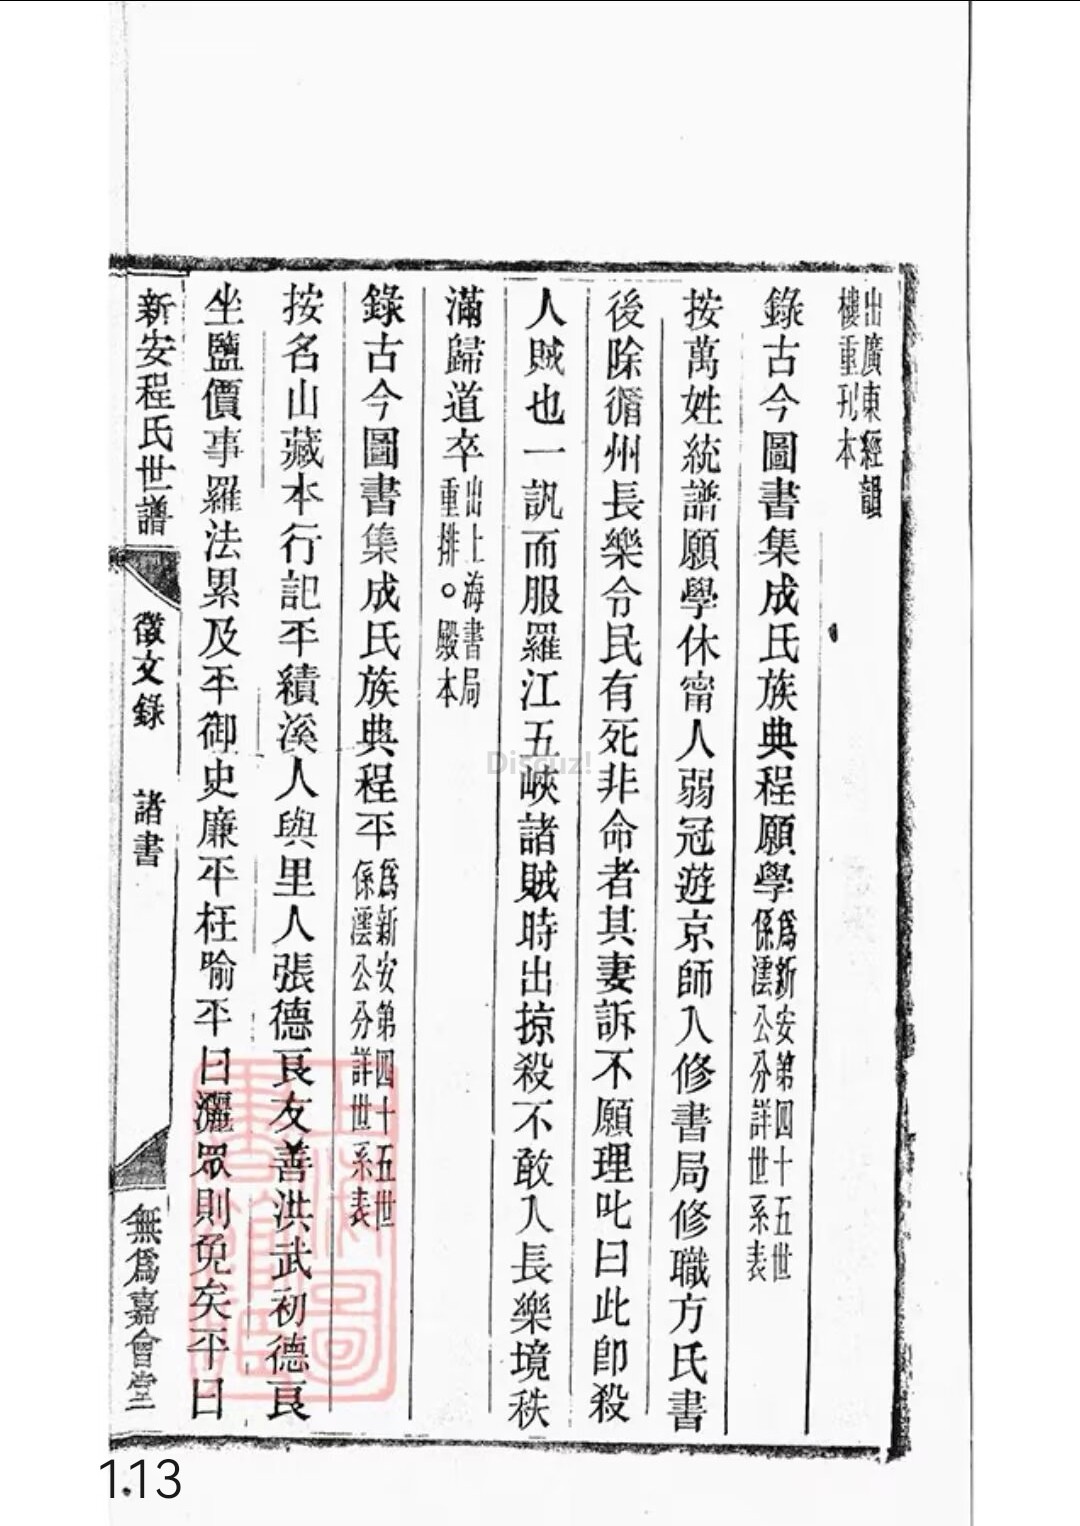 出廣東經韻
樓重刊本
錄古今圖書集成氏族典程願學爲新安第四十五世
係澐公分詳世系表
按萬姓統譜願學休甯人弱冠遊京師入修書局修職方氏書
後除循州長樂令民有死非命者其妻訴不願理叱曰此卽殺
人賊也一訊而服羅江五峽諸賊時出掠殺不敢入長樂境秩
滿歸道卒出上海書局
重排。殿本
錄古今圖書集成氏族典程平爲新安第四十五世
係澐公分詳世系表
按名山藏本行記平績溪人與里人張德良友善洪武初德良
坐鹽價事羅法累及平御史廉平枉喻平曰灑眾則免矣平曰
新安程氏世譜
徵文錄
諸書
無爲嘉會堂
Discuz!
113